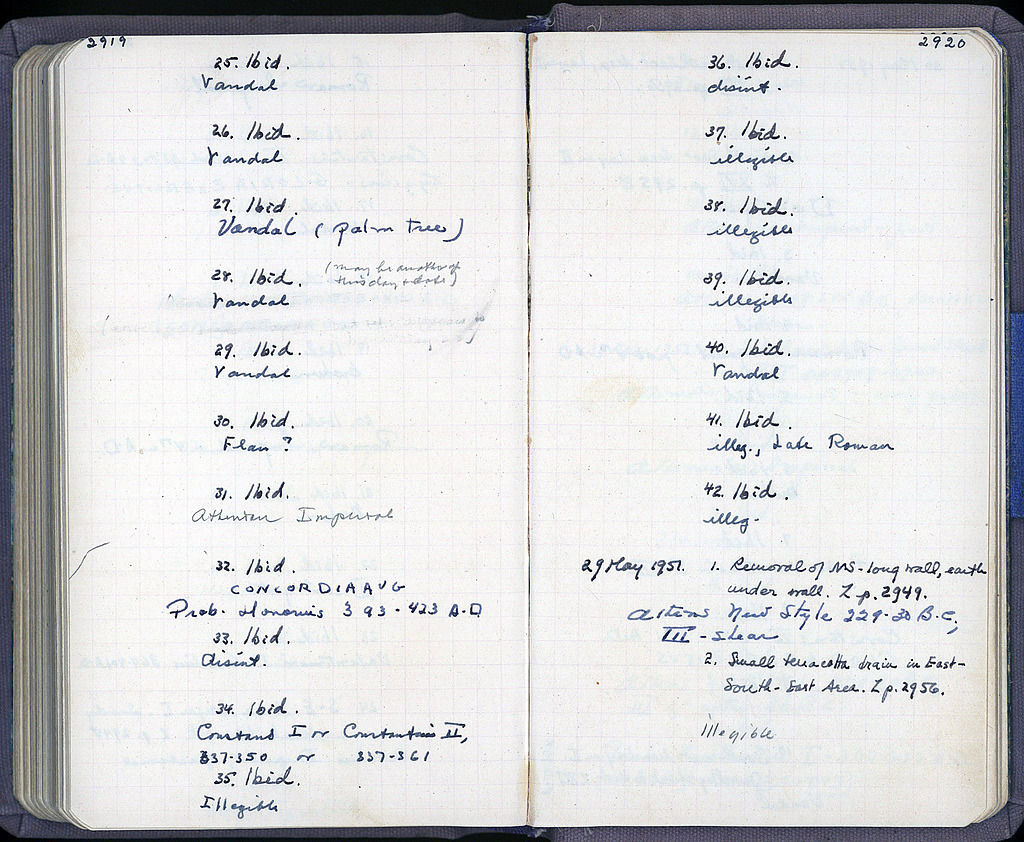 2919
25. Ibid.
Vandal
26. Ibid.
Vandal
27. Ibid.
Vandal (palm tree)
28. Ibid. (may be another of
this day & date)
Vandal
29. Ibid.
Vandal
30. Ibid.
Flan?
31. Ibid.
Athenian Imperial
32. Ibid.
CONCORDIA AVG
Prob. Honorius 393-423 A.D
33. Ibid.
disint.
34. Ibid.
Constans I or Constantius II,
337-350 or 337-361
35. Ibid.
Illegible
2920
36. Ibid.
disint.
37. Ibid.
illegible
38. Ibid.
illegible
39. Ibid.
illegible
40. Ibid.
Vandal
41. Ibid.
illeg., Late Roman
42. Ibid.
illeg.
29 May 1951. 1. Removal of NS-long wall, earth
under wall. Z p. 2949.
Athens New Style 229-30 B.C,
III - Shear
2. Small terracotta drain in East-
South-East Area. Z p. 2956.
illegible